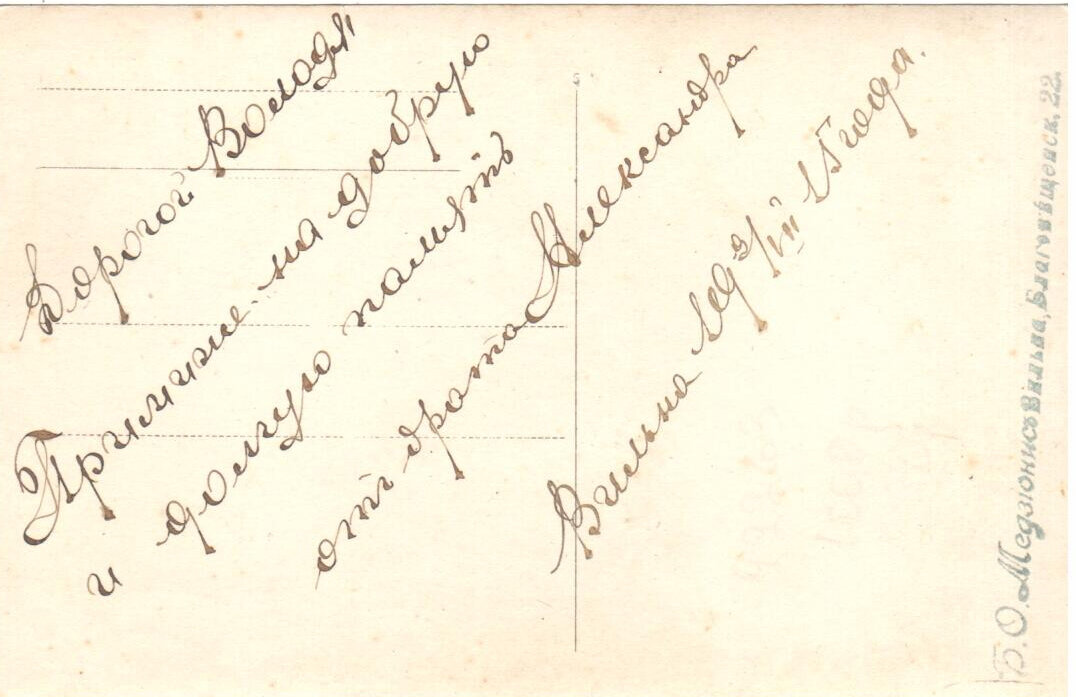 Дорогой Володя
Прими же на добрую
и долгую память
отъ брата Александра
Вильна 19 15 года.
Б. О. Медзіонисъ Вильна, Благовѣщенск. 22.